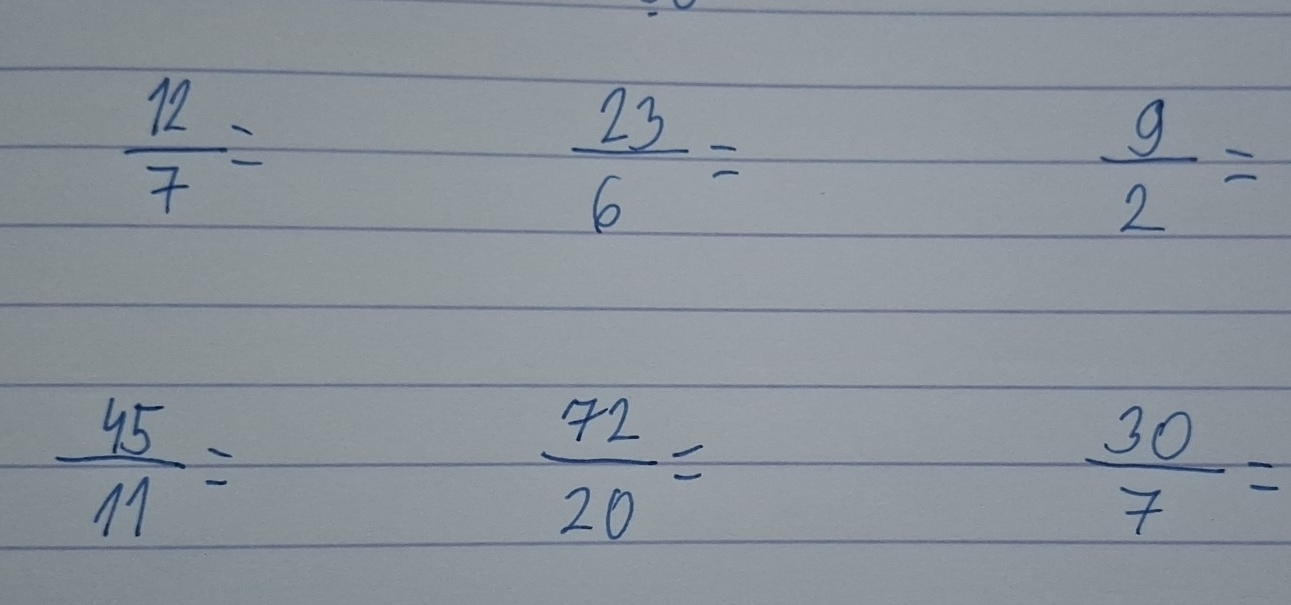 12/7 = 23/6 = 9/2 =
45/11 = 72/20 = 30/7 =